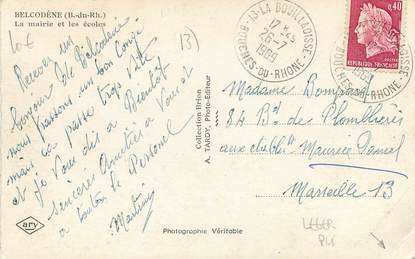 BELCODÈNE (B.-du-Rh.)
La mairie et les écoles
Recevez un
bonjour de Belcodène
nous passons un bon Congé
mais ça passe trop vite
et je vous dis a Bientot
sincères Amitiés a Vous
a toutou le Personel
Martinez
ary
Collection Brion
A. TARDY, Photo-Editeur
Photographie Véritable
13-LA BOUILLADISSE
17 H 45
26-7
1969
BOUCHES-DU-RHONE
0,40
REPUBLIQUE FRANÇAISE
Madame Bompard
84 Bd de Plombières
aux etablts Maurice
Marseille 13